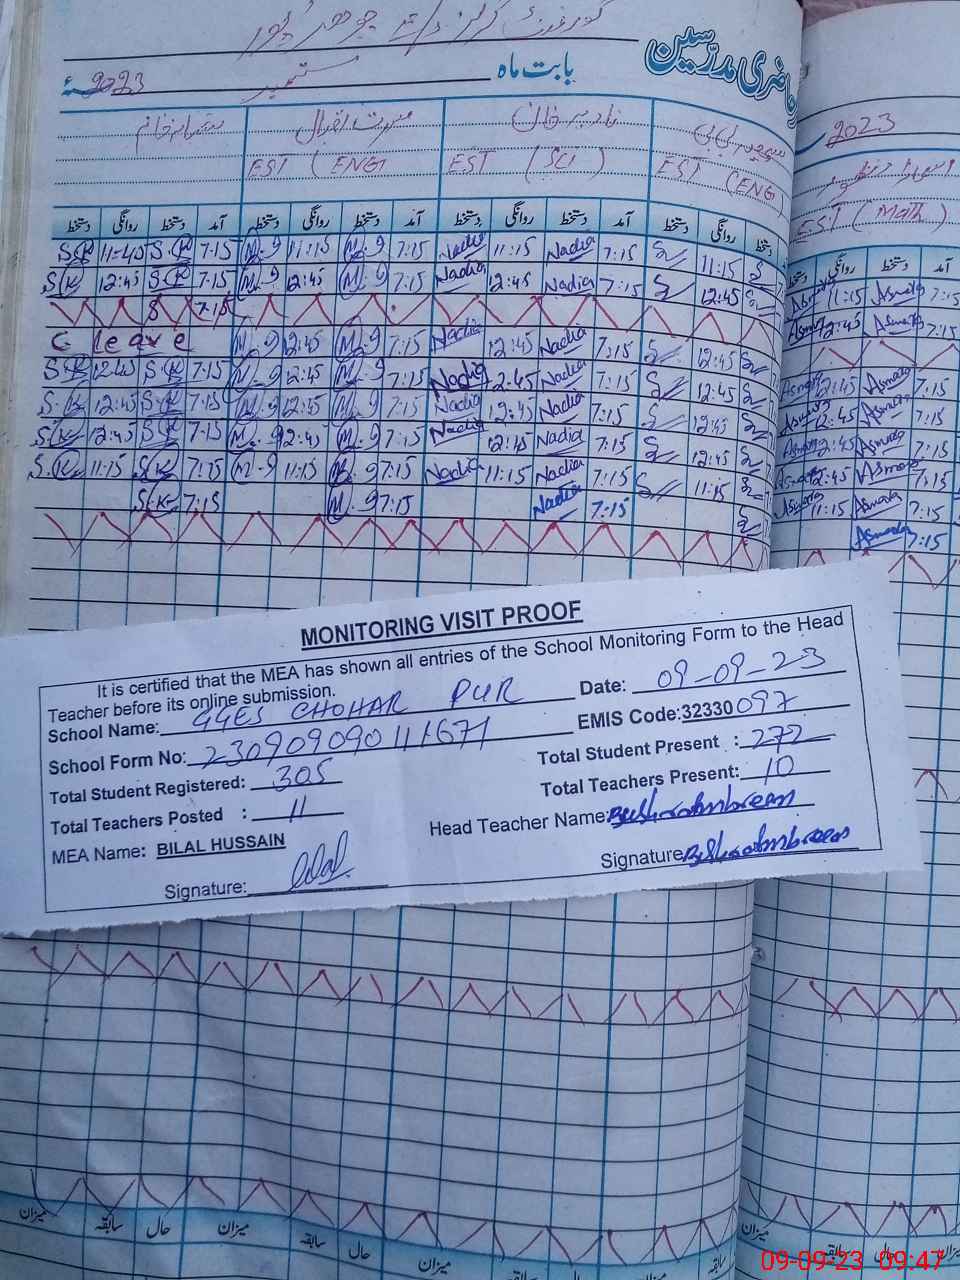 حاضری مدرّسین
بابت ماہ ستمبر 2023ء
2023
EST (ENG) EST (SCI) EST (ENG)
EST (Math)
دستخط روانگی دستخط آمد دستخط روانگی دستخط آمد دستخط روانگی دستخط آمد دستخط روانگی دستخط
دستخط روانگی دستخط آمد
S.K 11-45 S.K 7:15 M-9 11:15 M-9 7:15 Nadia 11:15 Nadia 7:15 11:15 Asmara 11:15 Asmara 7:15
S.K 12:45 S.K 7:15 M-9 12:45 M-9 7:15 Nadia 12:45 Nadia 7:15 12:45 Asmara 12:45 Asmara 7:15
S 7:15
C leave M-9 12:45 M-9 7:15 Nadia 12:45 Nadia 7:15 12:45
S.K 12:45 S.K 7:15 M-9 12:45 M-9 7:15 Nadia 12:45 Nadia 7:15 12:45 Asmara 12:45 Asmara 7:15
S.K 12:45 S.K 7:15 M-9 12:45 M-9 7:15 Nadia 12:45 Nadia 7:15 12:45 Asmara 12:45 Asmara 7:15
S.K 12:45 S.K 7:15 M-9 12:45 M-9 7:15 Nadia 12:15 Nadia 7:15 12:45 Asmara 12:45 Asmara 7:15
S.K 11:15 S.K 7:15 M-9 11:15 M-9 7:15 Nadia 11:15 Nadia 7:15 11:15 Asmara 11:15 Asmara 7:15
S.K 7:15 M-9 7:15 Nadia 7:15 Asmara 7:15
MONITORING VISIT PROOF
It is certified that the MEA has shown all entries of the School Monitoring Form to the Head
Teacher before its online submission.
School Name: GGES CHOHAR PUR Date: 09-09-23
School Form No: 230909090111671 EMIS Code:32330097
Total Student Registered: 305 Total Student Present : 272
Total Teachers Posted : 11 Total Teachers Present: 10
MEA Name: BILAL HUSSAIN Head Teacher Name: Bushra ambreen
Signature: Bilal Signature Bushra ambreen
میزان سابقہ حال میزان سابقہ حال میزان سابقہ حال میزان سابقہ
میزان سابقہ حال میزان
09-09-23 09:47